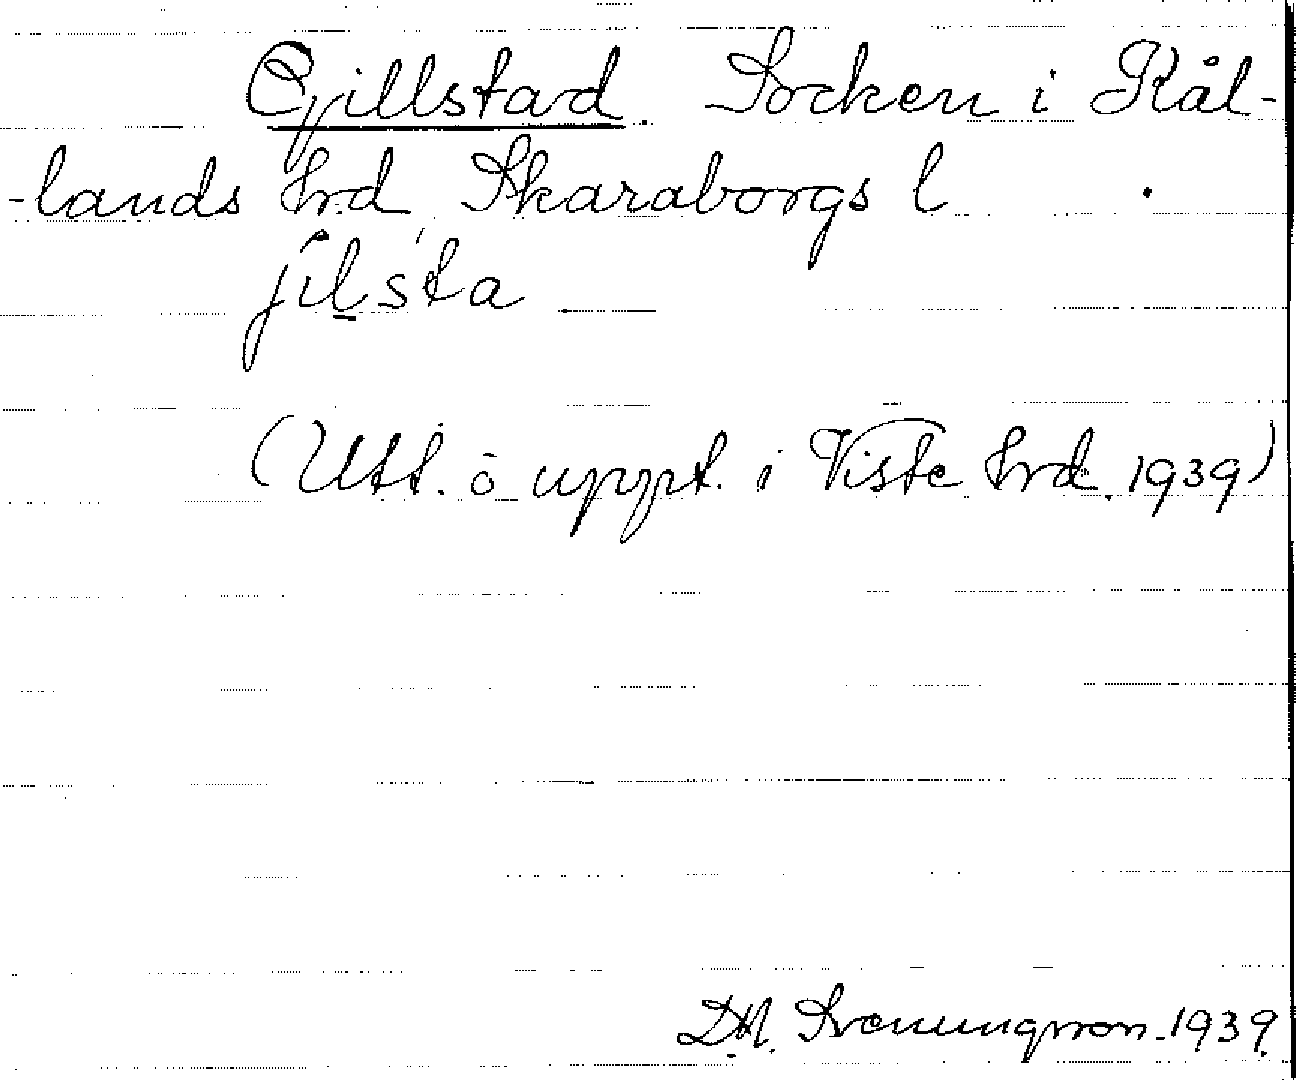 Gillstad. Socken i Kål-
-lands Hrd Skaraborgs l
jìlsta
(Utt. o uppt. i Viste Hrd. 1939)
D.A. Svenungsson. 1939.